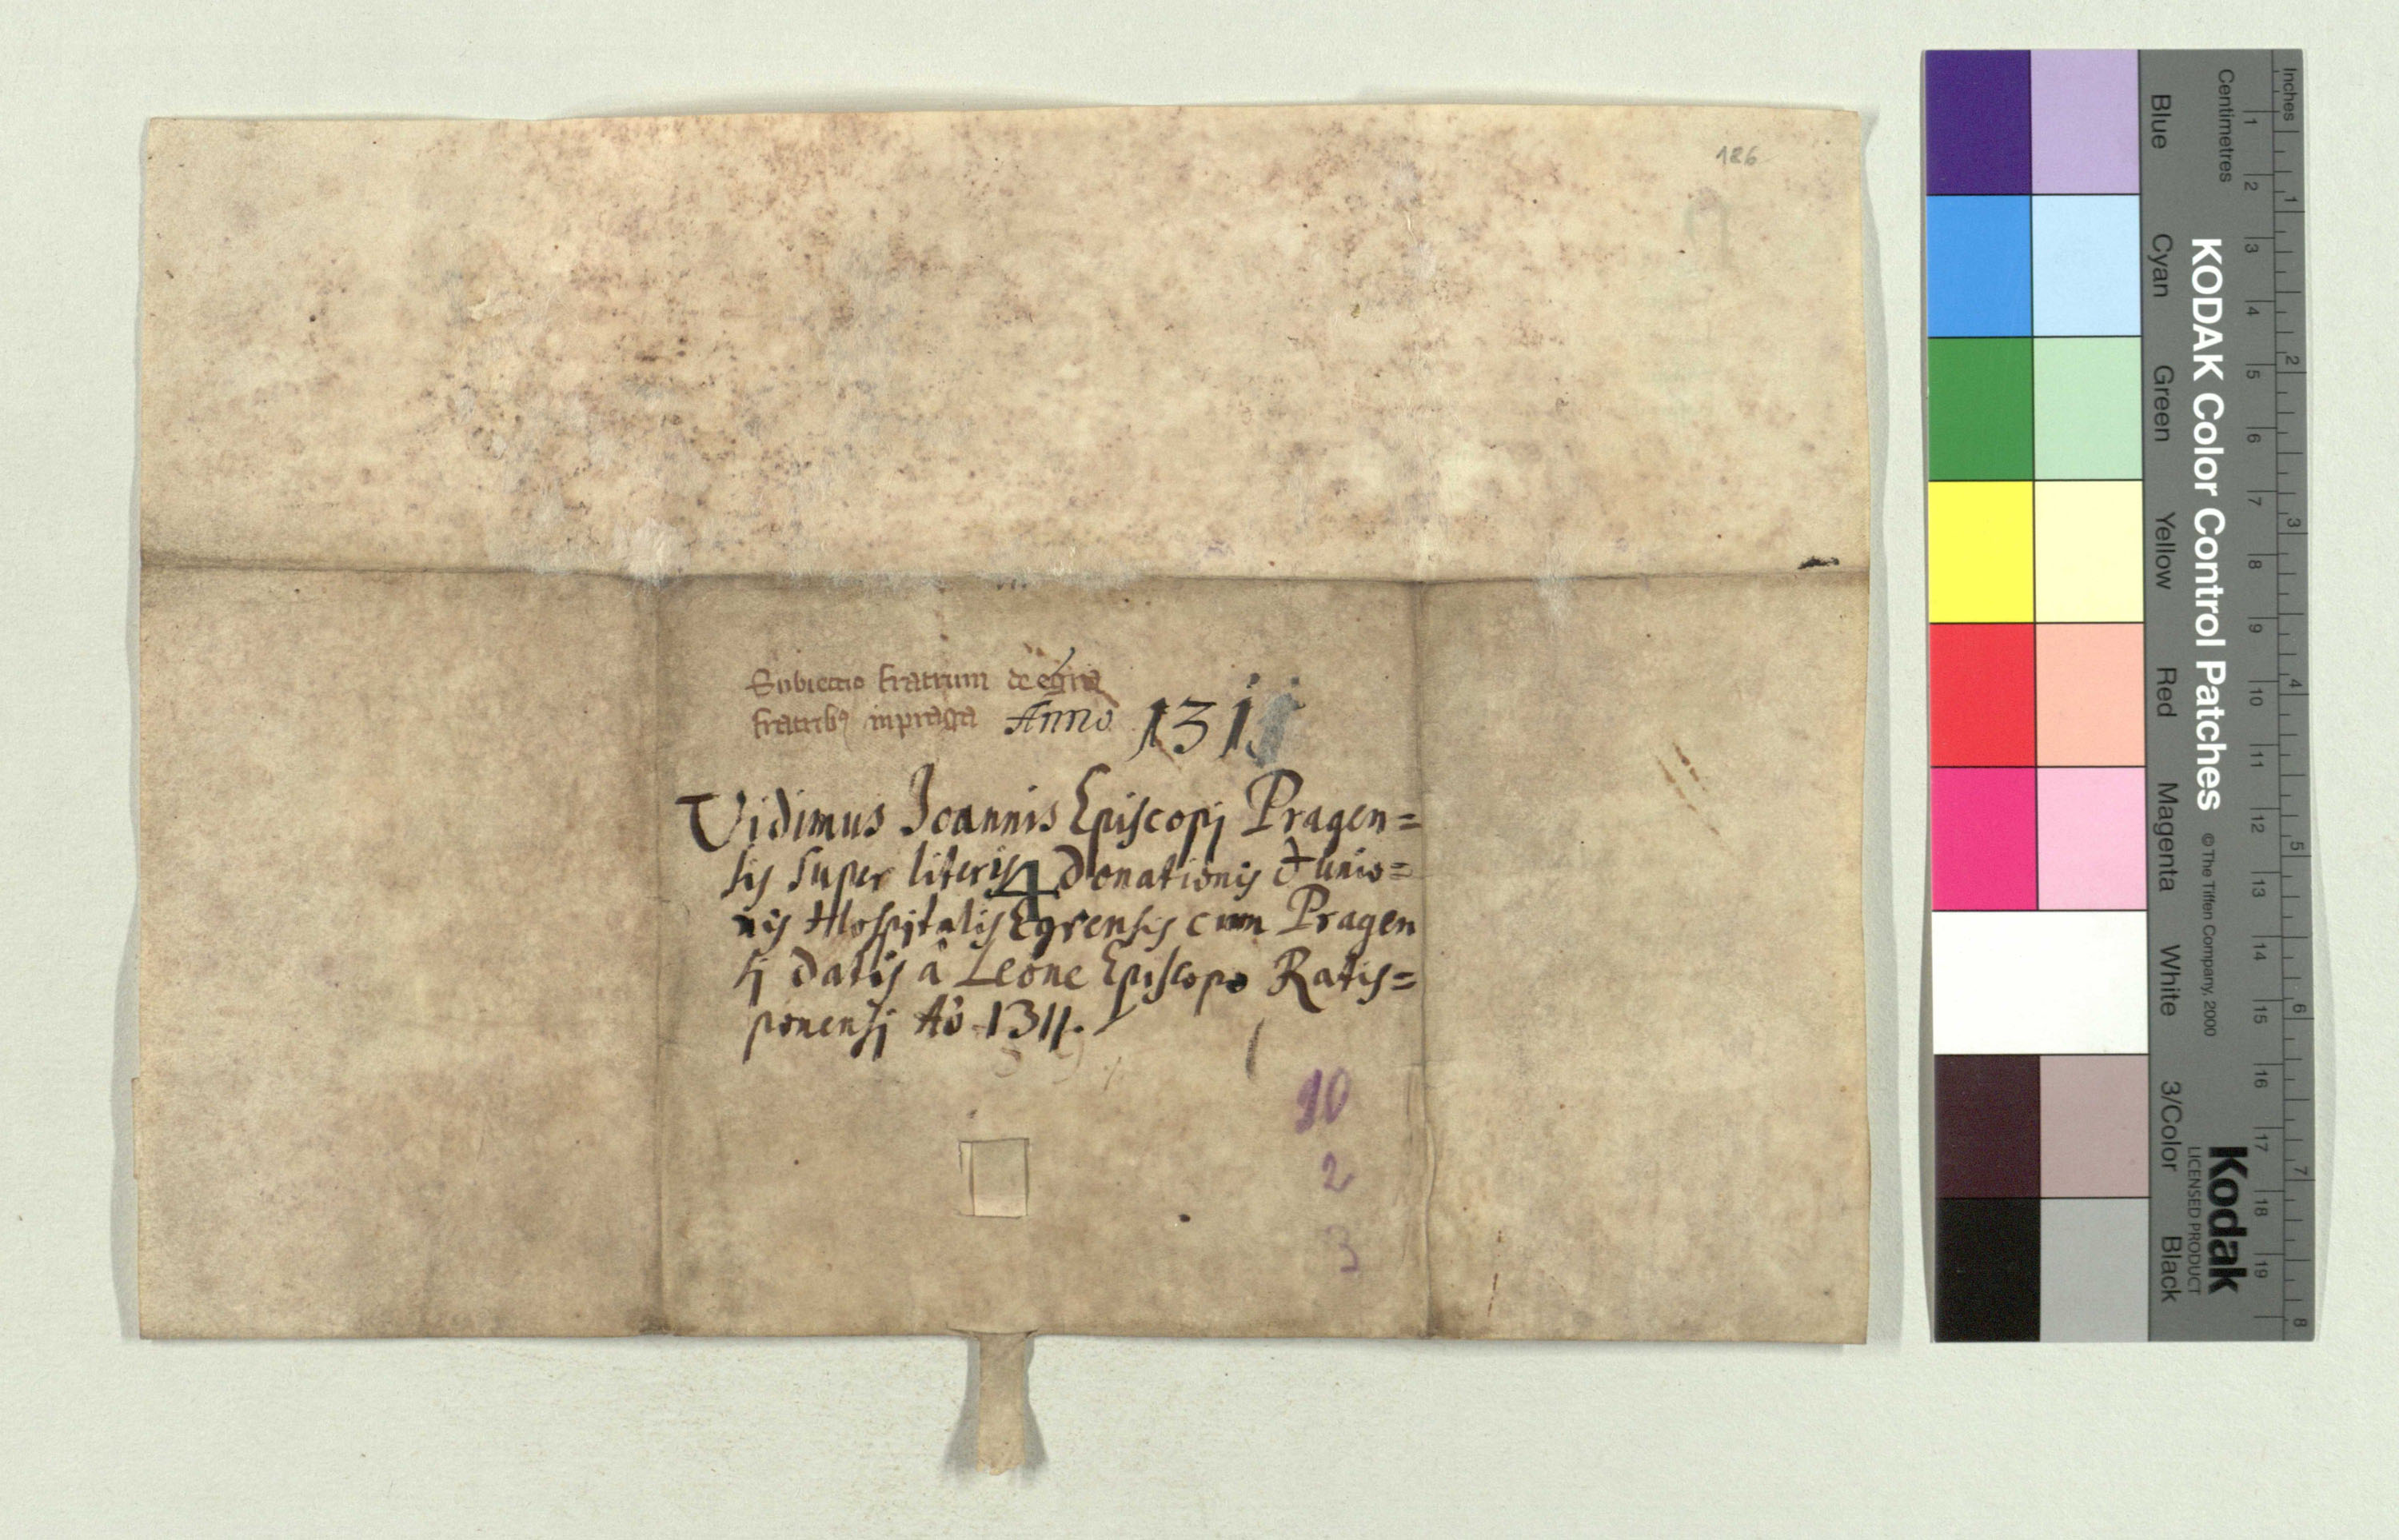 186
Subiectio fratrum de egra
fratribꝰ in praga Anno 131
Vidimus Joannis Episcopj Pragen=
sis super literis donationis & unio=
4
nis Hospitalis Egrensis cum Pragen
sj datis â Leone Episcopo Ratis=
ponensj Aō 1311.
10
2
3
Inches
Centimetres
Blue Cyan Green Yellow Red Magenta White 3/Color Black
KODAK Color Control Patches © The Tiffen Company, 2000
Kodak
LICENSED PRODUCT
1 2 3 4 5 6 7 8 9 10 11 12 13 14 15 16 17 18 19
1 2 3 4 5 6 7 8